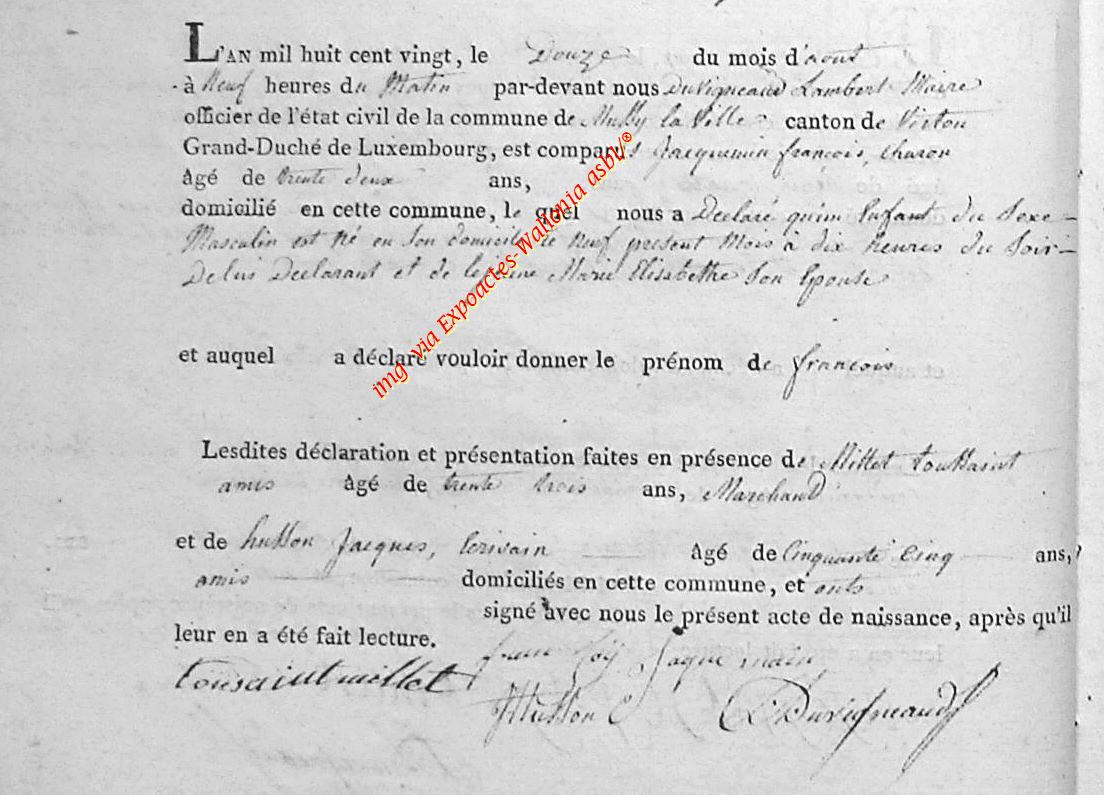 L'AN mil huit cent vingt, le Douze du mois d'aout
à Neuf heures du Matin par-devant nous Duvigneaud Lambert Maire
officier de l'état civil de la commune de Mussy la Ville canton de Virton
Grand-Duché de Luxembourg, est comparus Jacquemin françois, charon
âgé de trente deux ans,
domicilié en cette commune, le quel nous a Declaré qu'un Enfant du Sexe
Masculin est né en Son domicile le Neuf present Mois a dix heures du Soir
De lui Declarant et de Marie Elisabethe Son Epouse
et auquel a déclaré vouloir donner le prénom de françois
Lesdites déclaration et présentation faites en présence de Millet toussaint
amis âgé de trente trois ans, Marchand
et de husson Jacques, Ecrivain âgé de Cinquante Cinq ans,
amis domiciliés en cette commune, et onts
signé avec nous le présent acte de naissance, après qu'il
leur en a été fait lecture.
Jaque main
tousaint millet
JHusson L Duvigneaud
img via Expoactes-Wallonia asbl/®